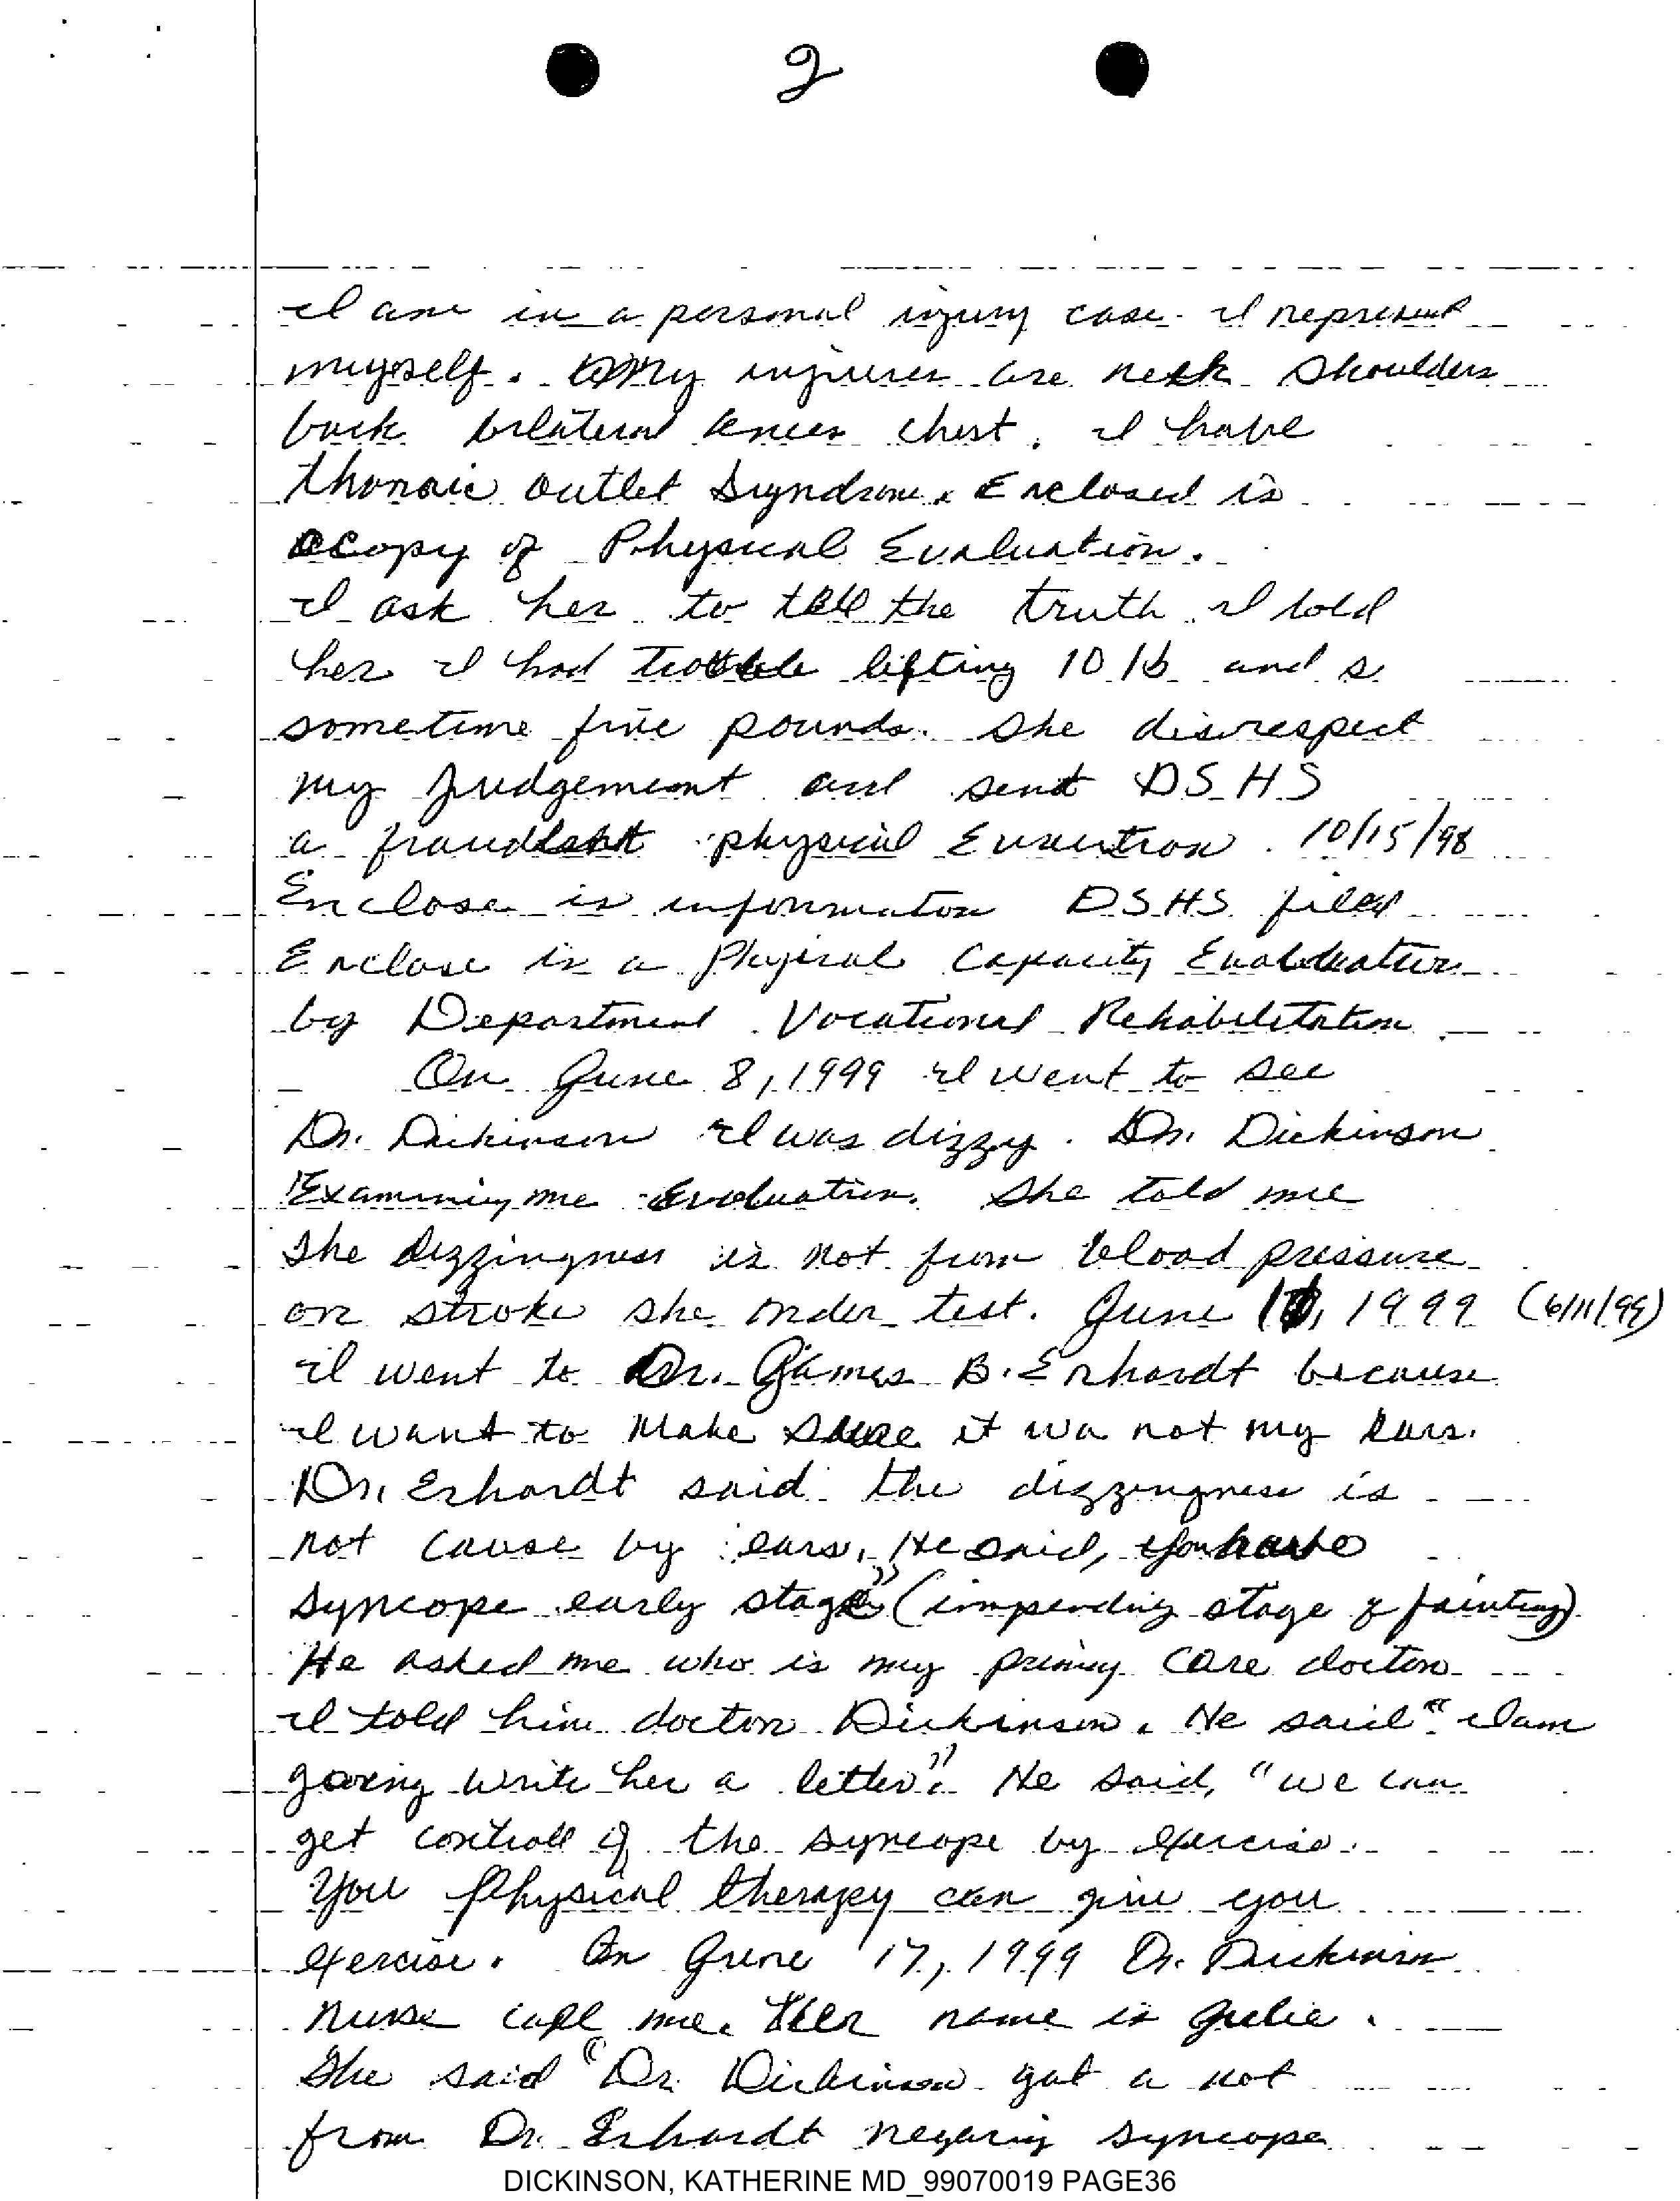 2
I am in a personal injury case. I represent
myself. My injures are neck shoulders
back bilateral knees chest. I have
thoraic outlet Syndrome. Enclosed is
copy of Physical Evaluation.
I ask her to tell the truth I told
her I had trouble lifting 10 lb and s
sometime five pounds. She disrespect
my judgement and sent DSHS
a physical 10/15/98
Enclose is informaton DSHS filed
Enclose is a Physical Capacity Evaluation
by Department Vocational Rehabilitation
On June 8, 1999 I went to see
Dr. Dickinson I was dizzy. Dr. Dickinson
Examining me Evaluation. She told me
the dizzingness is not from blood pressure
or stroke she order test. June 11, 1999 (6/11/99)
I went to Dr. James B. Erhardt because
I want to make sure it wa not my ears.
Dr. Erhardt said the dizzingness is
not cause by ears. He said, you have
syncope early stage" (impending stage of fainting)
He asked me who is my primy care doctor
I told him doctor Dickinson. He said "I am
going write her a letter". He said, "we can
get controll of the syncope by exercise.
You Physical therapy can give you
exercise. On June 17, 1999 Dr. Dickinson
nurse call me. Her name is Julie.
She said "Dr. Dickinson got a not
from Dr. Erhardt syncope
DICKINSON, KATHERINE MD_99070019 PAGE36